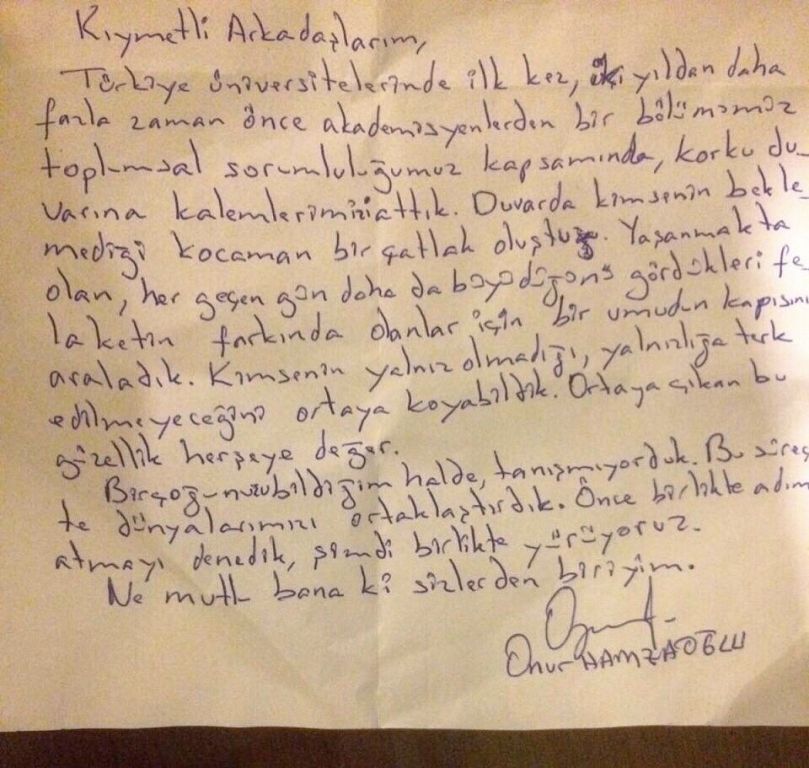 Kıymetli Arkadaşlarım,
Türkiye üniversitelerinde ilk kez, iki yıldan daha
fazla zaman önce akademisyenlerden bir bölümümüz
toplumsal sorumluluğumuz kapsamında, korku du-
varına kalemlerimizi attık. Duvarda kimsenin bekle-
mediği kocaman bir çatlak oluştu. Yaşanmakta
olan, her geçen gün daha da büyüdüğünü gördükleri fe
laketin farkında olanlar için bir umudun kapısını
araladık. Kimsenin yalnız olmadığı, yalnızlığa terk
edilmeyeceğini ortaya koyabildik. Ortaya çıkan bu
güzellik herşeye değer.
Birçoğunuzu bildiğim halde, tanışmıyorduk. Bu süreç
te dünyalarımızı ortaklaştırdık. Önce birlikte adım
atmayı denedik, şimdi birlikte yürüyoruz.
Ne mutlu bana ki sizlerden biriyim.
Onur HAMZAOĞLU